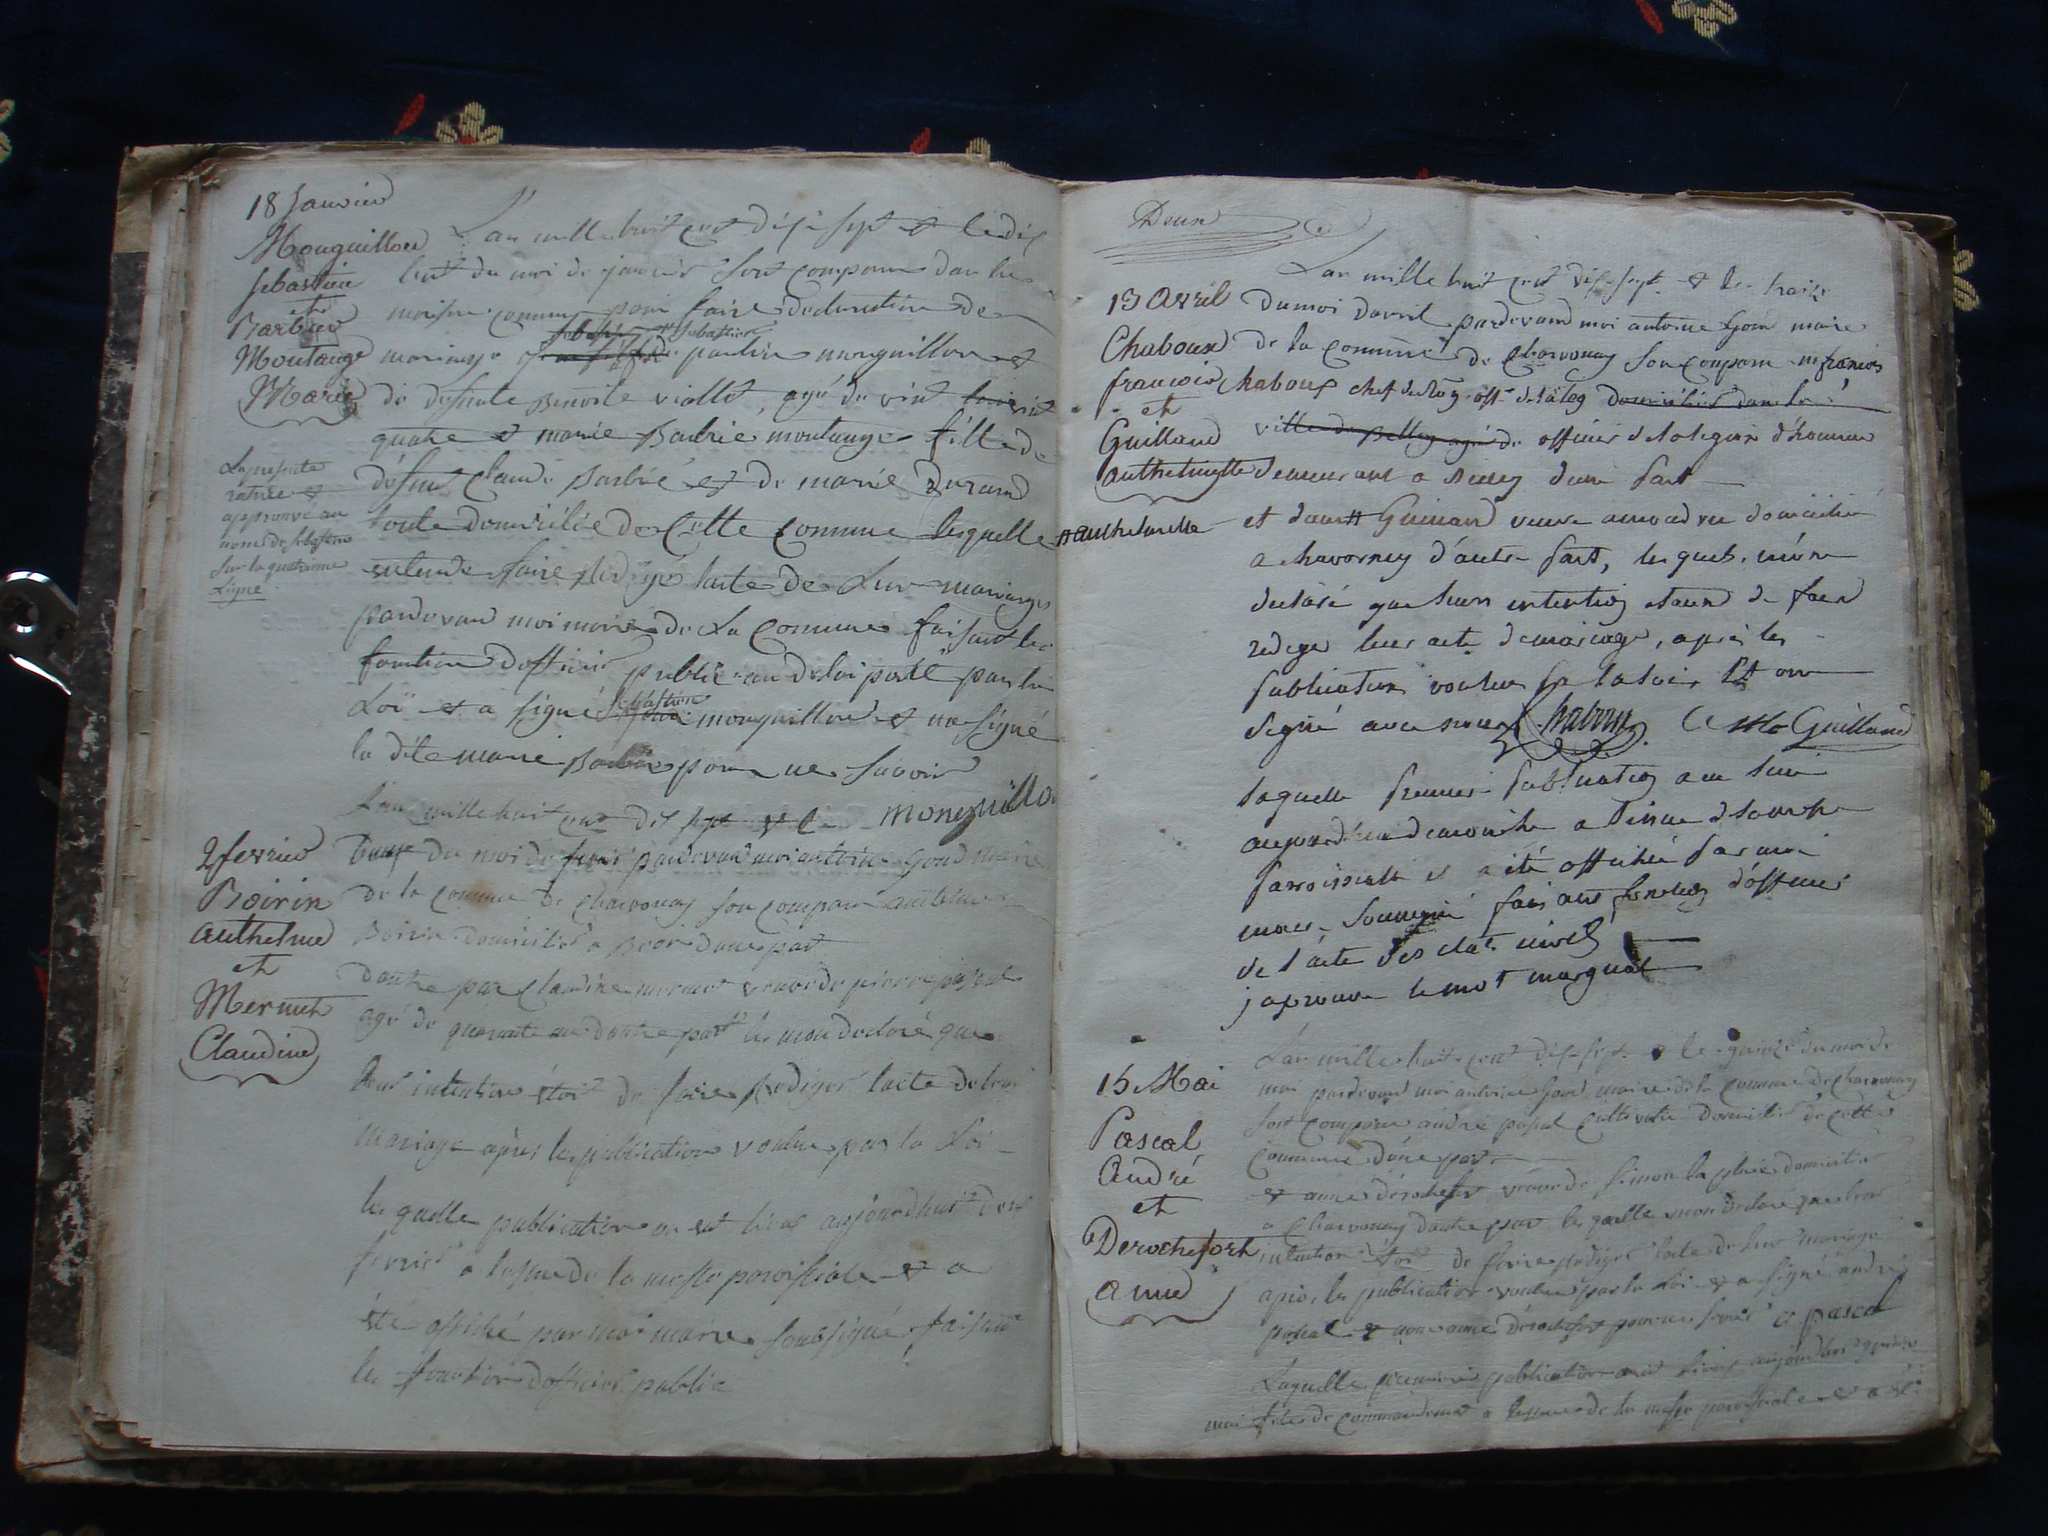 18 Janvier
Mouguillon
sebastien
et
Barbier
Montange
Marie
L'an mille huit cent dise sept et le dix
huit du moi de janvier sont comparu dan la
maison commune pour faire declaration de
mariage
sebastien
mouguillon et
de defunte Benoite viollet, agé de vint
quatre et marie Barbié montange fille de
défunt Claude Barbié et de marie Durand
toute domiciliée de Cette Commune lesquelle
entende faire rédigé lacte de Leur mariage
pardevand moi maire de La Commune faisant les
fonction dofficier public au desir porté par la
Loi et a signé sebastien mouguillon et na signé
la dite marie Barbié pour ne savoir
monguillon
La presente
rature et
approuvé au
nom de sebastien
sur la quatrieme
Ligne
2 fevrier
Boirin
Anthelme
et
Mermet
Claudine
L'an mille huit cent dis sept et le
deux du moi de fevrier pardevand moi antoine Goud maire
de la Commune de Charvonay son comparu antelme
Boirin domicilié a Beon dune part
dautre par Claudine mermet veuve de pierre pascal
agé de quarante an dautre part les mon declaré que
leur intention étoit de faire rediger lacte de leur
mariage après les publication voulue par la Loi
la quelle publication on eut lieux aujourdhuit deux
fevrier a lissue de la messe paroissiale et a
été affiché par moi maire soussigné faisant
les fonction dofficier public
Deux
13 Avril
Chaboux
françois
et
Guilland
anthelmette
L'an mille huit cent dis sept et le traise
du moi davril pardevand moi antoine Goud maire
de la Commune de Charvonay son comparu mr francois
chaboux chef de
domicilié dans la
ville de Belley agé de officier de la legion d'honneur
demeurant a Belley dune part
anthelmette
et dautre Guilland veuve
domicilié
a chavorney d'autre part, les quels mon
declaré que leurs intention etaint de faire
rediger leur acte de mariage, après les
publication voulue par la loi, Et on
signé avec nous Chaboux
Guilland
laquelle premiere publication a eu lieu
aujourd'hui dimanche a l'issue de la messe
paroissialle et a été affichée par moi
maire soussigné faisant fonction d'officier
de l'acte des état civil
j approuve le mot marginal
15 Mai
Pascal
André
et
Derochefort
anne
L'an mille huit cent dis sept et le quinze du moi de
mai pardevand moi antoine Goud maire de la commune de Charvonay
sont comparu andré pascal cultivateur domicilié de cette
commune dune part
et anne dérochefort veuve de simon la pluie domicilié
a Charvonay dautre part les quelle mon declaré que leur
intention étoit de faire rediger lacte de leur mariage
après les publication voulue par la Loi et a signé andré
pascal et non anne dérochefort pour ne savoir a pascal
Laquelle premiere publication a eu lieux aujourdhui quinze
mai fête de commandement a lissue de la messe paroissiale et a été